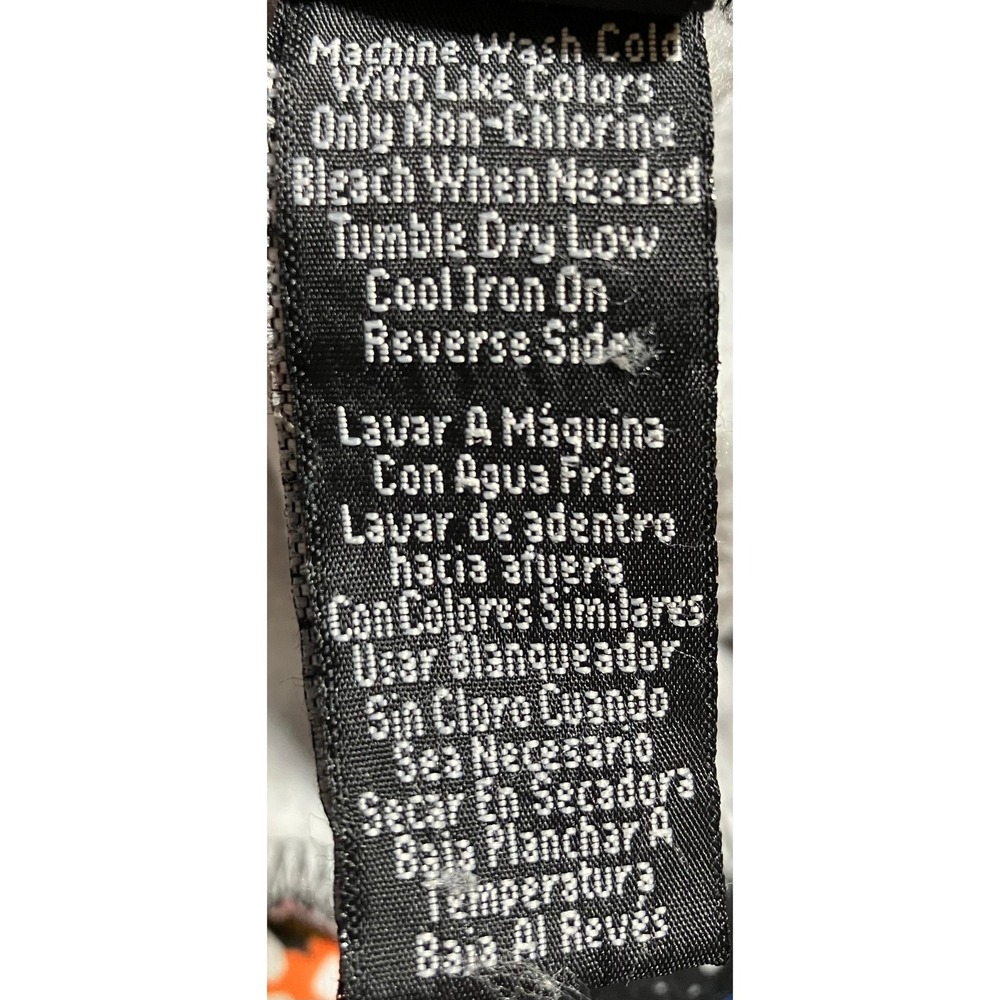 Machine Wash Cold
With Like Colors
Only Non-Chlorine
Bleach When Needed
Tumble Dry Low
Cool Iron On
Reverse Side
Lavar A Máquina
Con Agua Fría
Lavar de adentro
hacia afuera
Con Colores Similares
Usar Blanqueador
Sin Cloro Cuando
Sea Necesario
Secar En Secadora
Baja Planchar A
Temperatura
Baja Al Revés